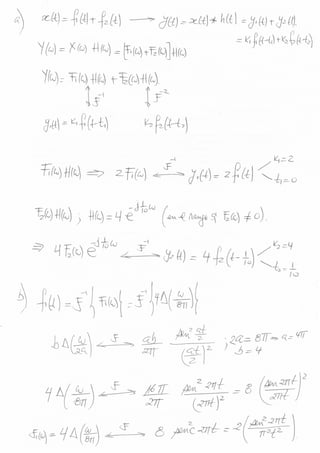 a) x(t) = f₁(t) + f₂(t) → y(t) = x(t) * h(t) = y₁(t) + y₂(t)
= k₁f₁(t-t₁) + k₂f₂(t-t₂)
Y(ω) = X(ω) H(ω) = [F₁(ω) + F₂(ω)] H(ω)
Y(ω) = F₁(ω) H(ω) + F₂(ω) H(ω)
↕ F⁻¹ ↕ F⁻¹
y₁(t) = k₁f₁(t-t₁) k₂f₂(t-t₂)
F₁(ω) H(ω) ⇒ 2 F₁(ω) ↔ F⁻¹ y₁(t) = 2 f₁(t) k₁=2 t₁=0
F₂(ω) H(ω) ; H(ω) = 4 e^{-j ω/10} (en el rango F₂(ω) ≠ 0).
⇒ 4 F₂(ω) e^{-j ω/10} ↔ F⁻¹ y₂(t) = 4 f₂(t - 1/10) k₂=4 t₂=1/10
b) f₁(t) = F⁻¹{F₁(ω)} = F⁻¹{4Δ(ω/8π)}
bΔ(ω/2a) ↔ F ab/2π sen² at/2 / (at/2)² ; 2a = 8π ⇒ a = 4π
b = 4
4Δ(ω/8π) ↔ F 16π/2π sen² 2πt / (2πt)² = 8 (sen 2πt / 2πt)²
F₁(ω) = 4Δ(ω/8π) ↔ F 8 sinc² 2πt = 2 (sen² 2πt / π²t²)